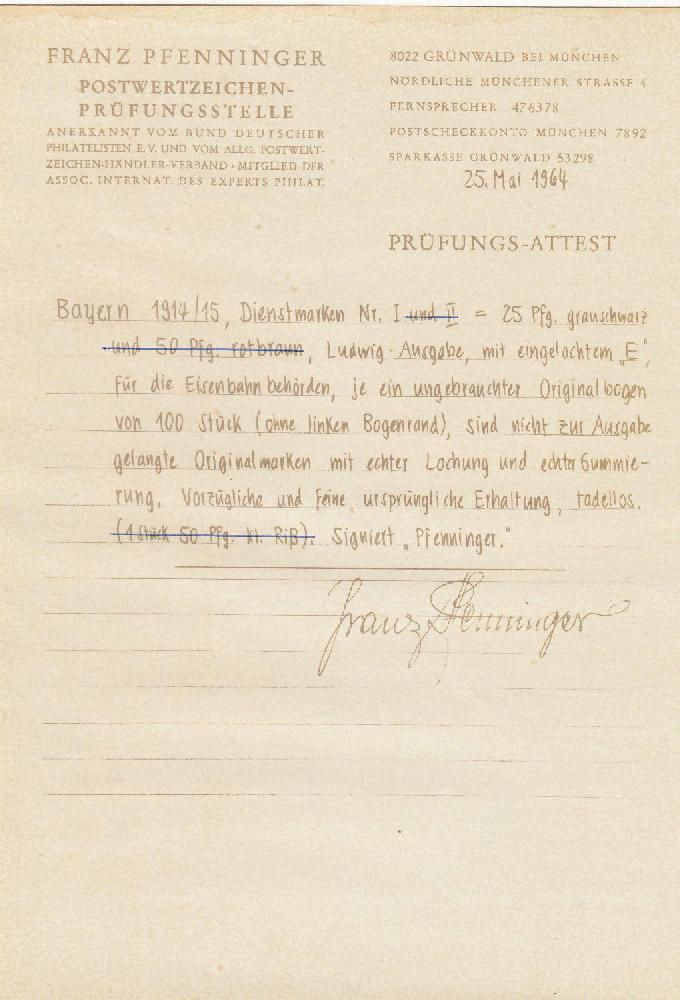 FRANZ PFENNINGER
POSTWERTZEICHEN-
PRÜFUNGSSTELLE
ANERKANNT VOM BUND DEUTSCHER
PHILATELISTEN E.V. UND VOM ALLG. POSTWERT-
ZEICHEN-HÄNDLER-VERBAND · MITGLIED DER
ASSOC. INTERNAT. DES EXPERTS PHILAT.
8022 GRÜNWALD BEI MÜNCHEN
NÖRDLICHE MÜNCHENER STRASSE 4
FERNSPRECHER 476378
POSTSCHECKKONTO MÜNCHEN 7892
SPARKASSE GRÜNWALD 53298
25. Mai 1964
PRÜFUNGS-ATTEST
Bayern 1914/15, Dienstmarken Nr. I und II = 25 Pfg. grauschwarz
und 50 Pfg. rotbraun, Ludwig-Ausgabe, mit eingelochtem „E",
für die Eisenbahnbehörden, je ein ungebrauchter Originalbogen
von 100 Stück (ohne linken Bogenrand), sind nicht zur Ausgabe
gelangte Originalmarken mit echter Lochung und echter Gummie-
rung. Vorzügliche und feine, ursprüngliche Erhaltung, tadellos.
(1 Stück 50 Pfg. kl. Riß). Signiert „Pfenninger."
Franz Pfenninger